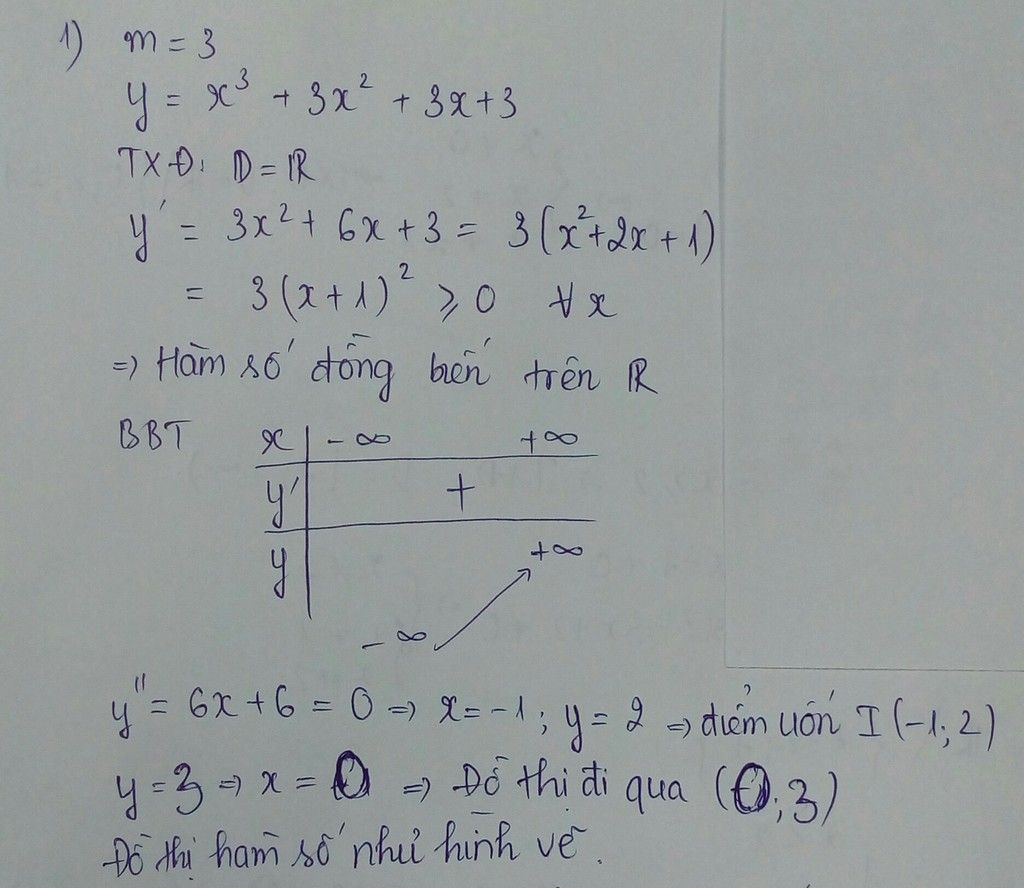 1) m = 3
y = x³ + 3x² + 3x + 3
TXĐ: D = ℝ
y' = 3x² + 6x + 3 = 3(x² + 2x + 1)
= 3(x + 1)² ⩾ 0 ∀x
=> Hàm số đồng biến trên ℝ
BBT x | -∞ +∞
y' | +
y | +∞
-∞
y'' = 6x + 6 = 0 => x = -1; y = 2 => điểm uốn I(-1; 2)
y = 3 => x = 0 => Đồ thị đi qua (0; 3)
Đồ thị hàm số như hình vẽ.